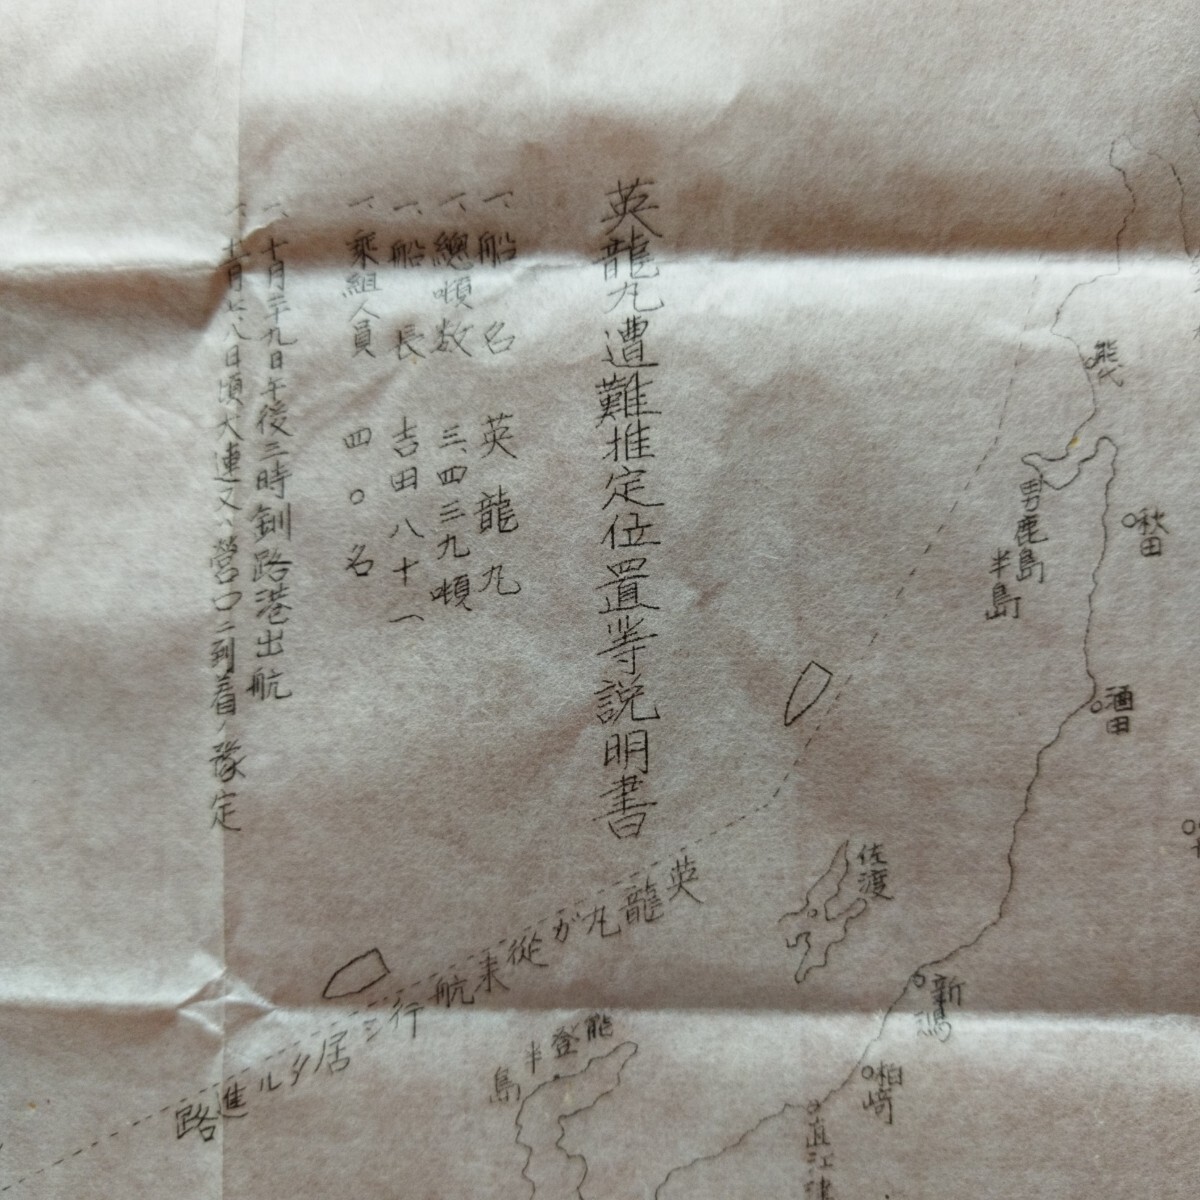 英龍丸遭難推定位置等説明書
一、船名 英龍丸
一、總噸数 三、四三九噸
一、船長 吉田八十一
一、乗組人員 四〇名
一、十月二十九日午後三時釧路港出航
一、十一月七、八日頃大連又ハ營口ニ到着ノ豫定
能代
男鹿島
半島
秋田
酒田
佐渡
新潟
柏崎
直江津
能登半島
英龍丸が從来航行シ居タル進路